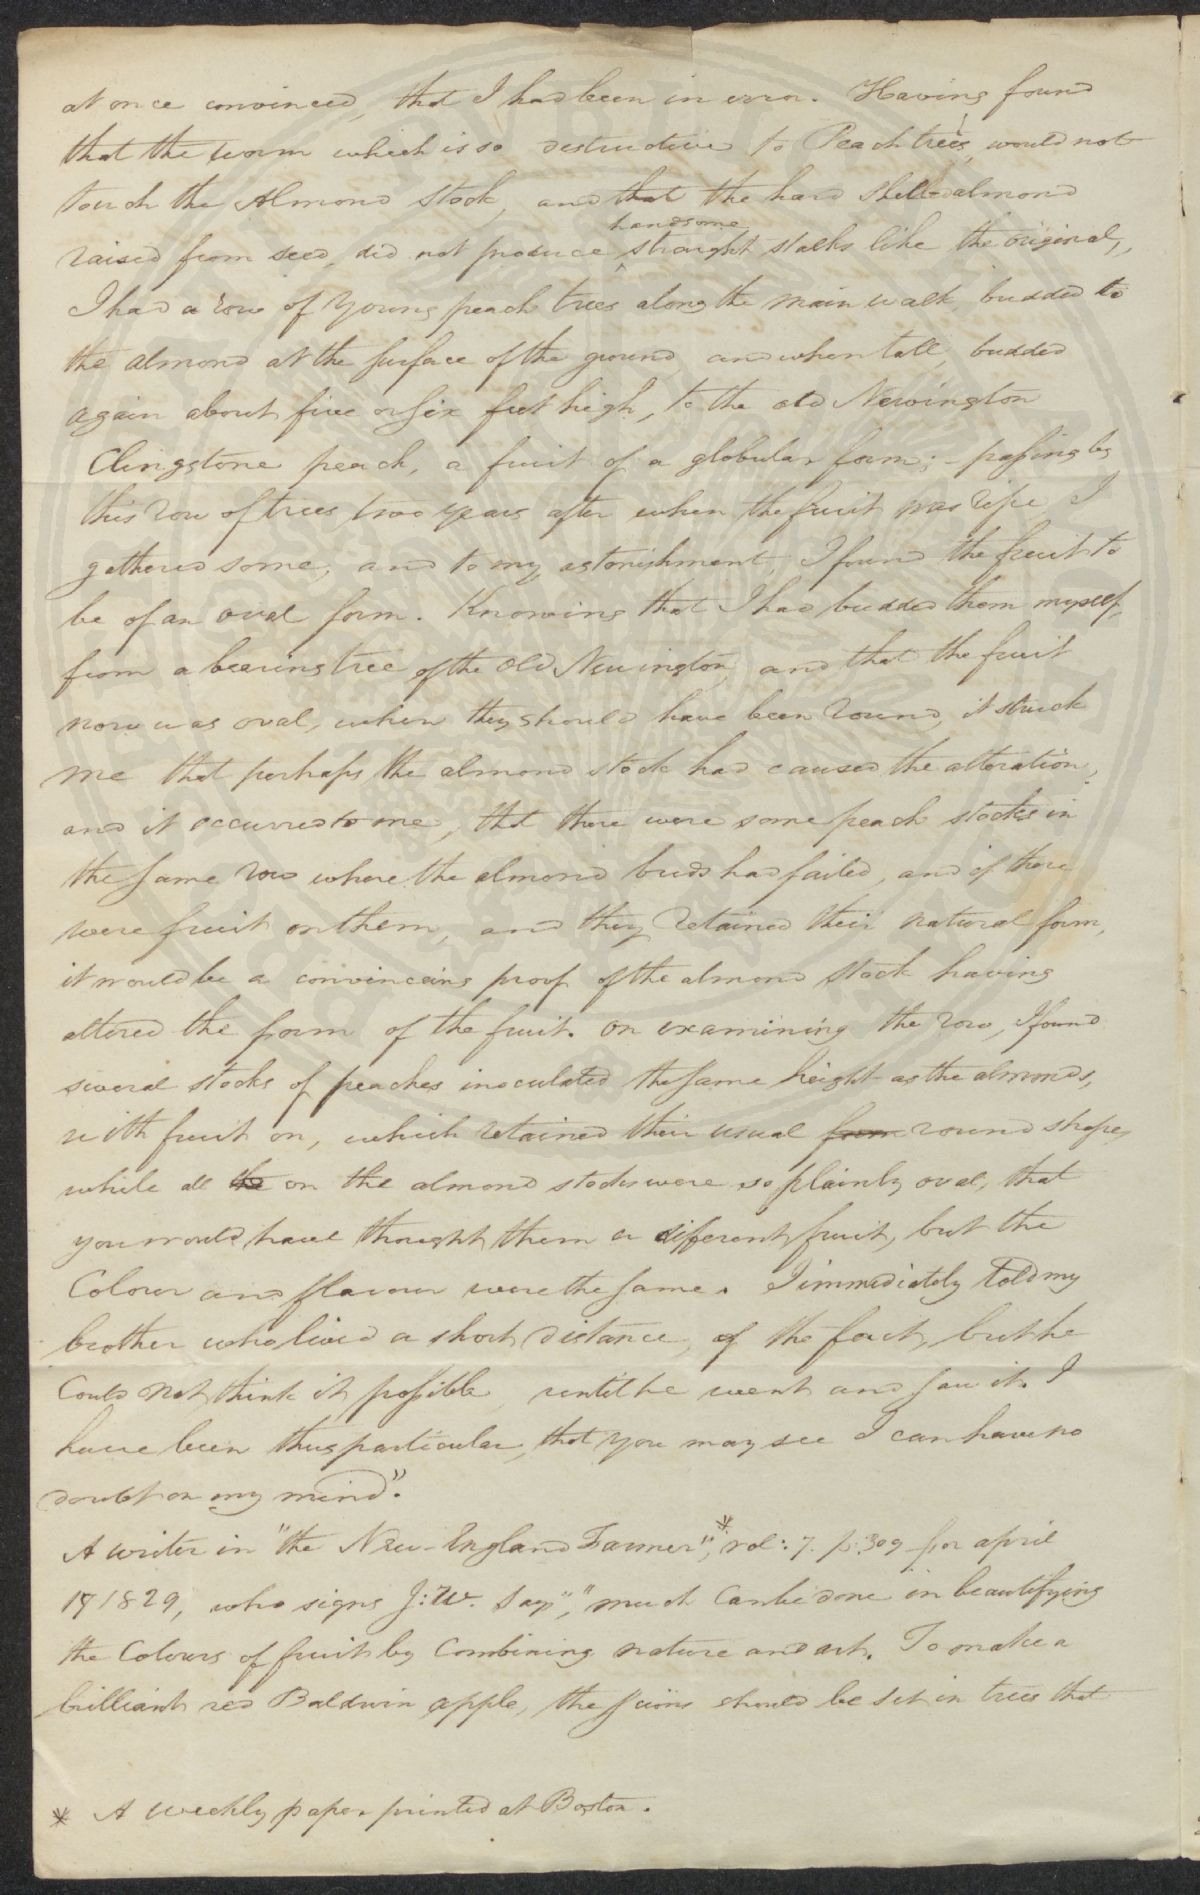 at once convinced, that I had been in error. Having found
that the worm which is so destructive to Peach trees, would not
touch the Almond stock, and that the hard shelled almond
handsome
raised from seed, did not produce ^ straight stalks like the original,
I had a row of young peach trees along the main walk, budded to
the almond at the surface of the ground, and when tall, budded
again about five or six feet high, to the old Newington
Clingstone peach, a fruit of a globular form; - passing by
this row of trees two years after when the fruit was ripe I
gathered some, and to my astonishment, I found the fruit to
be of an oval form. Knowing that I had budded them myself,
from a bearing tree of the Old Newington, and that the fruit
now was oval, when they should have been round, it struck
me that perhaps the almond stock had caused the alteration,
and it occurred to me, that there were some peach stocks in
the same row where the almond buds had failed, and if there
were fruit on them, and they retained their natural form,
it would be a convinceing proof of the almond stock having
altered the form of the fruit. On examining the row, I found
several stocks of peaches inoculated the same height as the almonds,
with fruit on, which retained their usual form round shape,
while all the on the almond stocks were so plainly oval, that
you would have thought them a different fruit, but the
Colour and flavour were the same. I immediately told my
brother who lived a short distance, of the fact, but he
Could not think it possible, until he went and saw it. I
have been thus particular, that you may see I can have no
doubt on my mind".
A writer in "the New-England Farmer",* vol: 7. p: 309 for april
17 1829, who signs J: W. says, "much can be done in beautifying
the Colours of fruit by Combining nature and art. To make a
brilliant red Baldwin apple, the scions should be set in trees that
* A weekly paper printed at Boston.